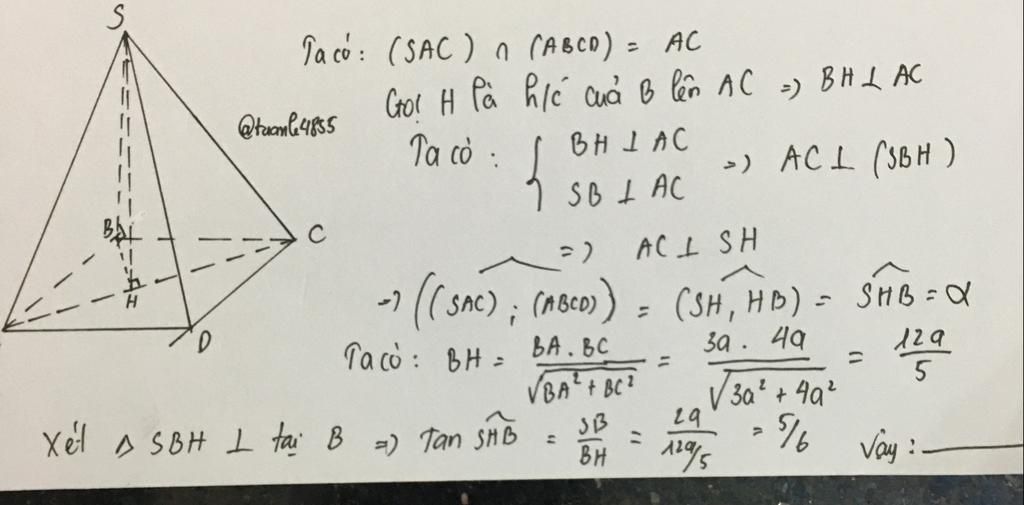 S
Ta có: (SAC) ∩ (ABCD) = AC
Gọi H là h/c của B lên AC => BH ⊥ AC
@tuanle4855
Ta có: { BH ⊥ AC
SB ⊥ AC => AC ⊥ (SBH)
=> AC ⊥ SH
B
C
H
D
=> ((SAC) ; (ABCD)) = (SH, HB) = SHB = α
Ta có: BH = BA . BC / √BA² + BC² = 3a . 4a / √3a² + 4a² = 12a / 5
Xét △ SBH ⊥ tại B => Tan SHB = SB / BH = 2a / 12a/5 = 5/6
Vậy: